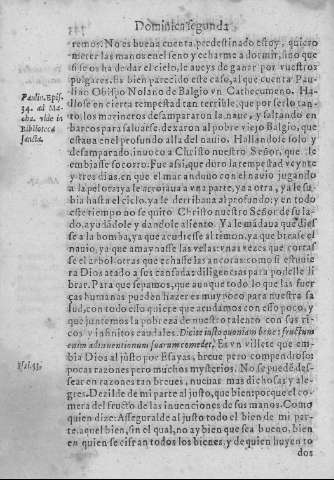 Dominica segunda
remos. No es buena cuenta, predestinado estoy, quiero
meter las manos en el seno y echarme a dormir, sino que
si se os ha de dar el cielo, le aueys de ganar por vuestros
pulgares. Es bien parecido este caso, al que cuenta Pau-
lino Obispo Nolano de Balgio vn Cathecumeno. Ha-
llose en cierta tempestad tan terrible, que por serlo tan-
to, los marineros desampararon la naue, y saltando en
barcos para saluarse, dexaron al pobre viejo Balgio, que
estaua en el profundo alla del nauio. Hallandose solo y
desamparado, inuoca a Christo nuestro Señor, que le
embiasse socorro. Fue assi, que duro la tempestad veynte
y tres dias, en que el mar anduuo con el nauio jugando
a la pelota: ya le arrojaua a vna parte, ya a otra, ya le su-
bia hasta el cielo, ya le derribana al profundo: y en todo
este tiempo no se quitò Christo nuestro Señor de su la-
do, ayudandole y dandole aliento. Ya le mādaua que diesse
se a la bomba, ya que acudiesse al temon, ya que breasse el
nauio, ya que amaynasse las velas: vnas vezes que cortas-
se el arbol: otras que echasse las ancoras: como si estuuie
ra Dios atado a sus cansadas diligencias para podelle li
brar. Para que sepamos, que aunque todo lo que las fuer
ças humanas pueden hazer es muy poco para nuestra sa
lud, con todo esso quiere que acudamos con esso poco, y
que juntemos la pobreza de nuestro talento con sus ri-
cos y infinitos caudales. Dicite iusto quoniam bene: fructum
enim adinuentionum suarum comedet. Es vn villete que em-
bia Dios al justo por Esayas, breue pero compendioso:
pocas razones pero muchos mysterios. No se puedē des-
sear en razones tan breues, nueuas mas dichosas y ale-
gres. Dezilde de mi parte al justo, que bien: porque el co-
mera del fructo de las inuenciones de sus manos. Como
quien dize: Asseguralde al justo todo el bien de mi par-
te. aquel bien, sin el qual, no ay bien que sea bueno, bien
en quien se cifran todos los bienes, y de quien huyen to
dos
Paulin. Epis.
34. ad Ma-
cha. vide in
Biblioteca
sancta.
Isai. 53.